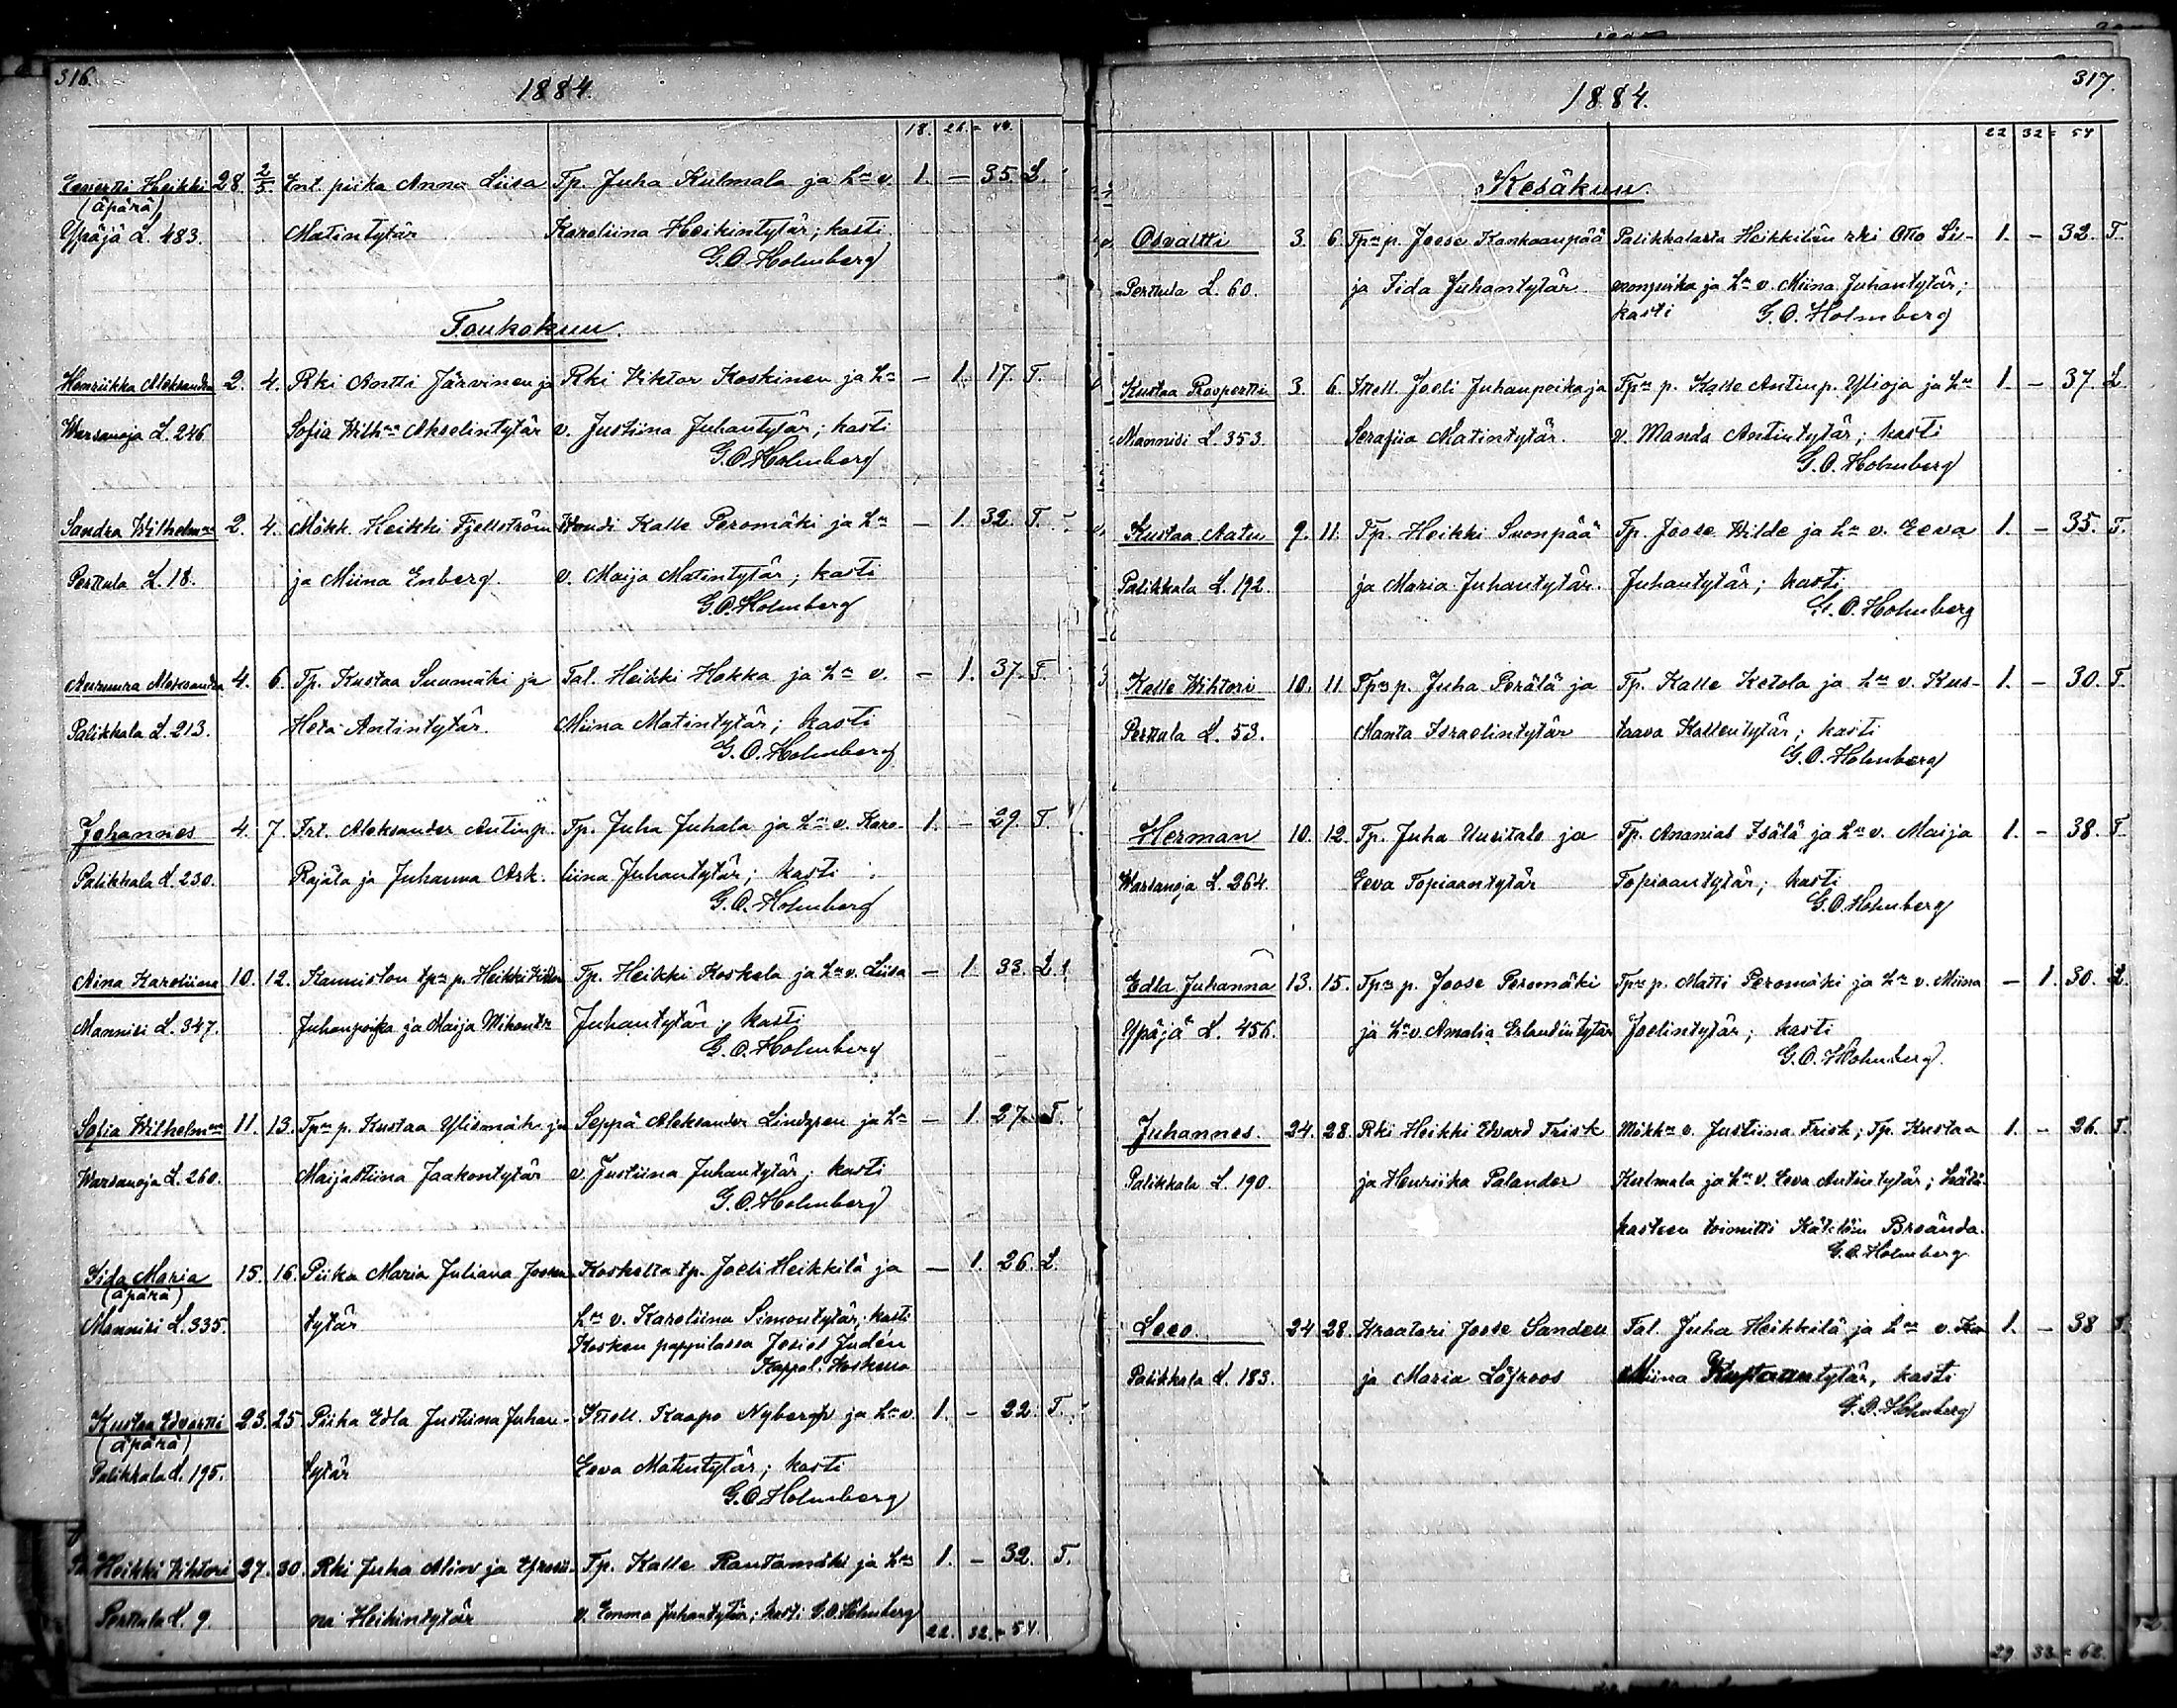 316.
1884.
18. 26. = 44.
Eevertti Heikki 28. 2/5. Ent. piika Anna Liisa Tp. Juha Kulmala ja h:n v. 1. — 35. L.
(äpärä)
Ypäjä L. 483. Matintytär Karoliina Heikintytär; kasti
G.O. Holmberg
Toukokuu.
Henriikka Aleksandra 2. 4. Rki Antti Järvinen ja Rki Viktor Koskinen ja h:n — 1. 17. T.
Warsanoja L. 246 Sofia Wilh:na Akselintytär v. Justiina Juhantytär; kasti
G.O. Holmberg
Sandra Wilhelm:na 2. 4. Mökk. Heikki Fjellström Kalle Peromäki ja h:n — 1. 32. T.
Perttula L. 18. ja Miina Enberg. v. Maija Matintytär; kasti
G.O. Holmberg
Aleksandra 4. 6. Tp. Kustaa Suumäki ja Tal. Heikki Hakka ja h:n v. — 1. 37. T.
Palikkala L. 213. Heta Antintytär. Miina Matintytär; kasti
G.O. Holmberg
Johannes 4. 7. Aleksander Antinp. Tp. Juha Juhala ja h:n v. Karo- 1. — 29. T.
Palikkala L. 230. Rajala ja Juhanna Ark. liina Juhantytär; kasti
G.O. Holmberg
Aina Karoliina 10. 12. Kanniston tp:n p. Heikki Tp. Heikki Koskela ja h:n v. Liisa — 1. 33. L.
Mannisi L. 347. Juhanpoika ja Maija Juhantytär; kasti
G.O. Holmberg
Sofia Wilhelm:na 11. 13. Tp:n p. Kustaa Ylismäki ja Seppä Aleksander Lindgren ja h:n — 1. 27. T.
Warsanoja L. 260. Maijastiina Jaakontytär v. Justiina Juhantytär; kasti
G.O. Holmberg
Iida Maria 15. 16. Piika Maria Juliana Joosen- Koskelta tp. Joeli Heikkilä ja — 1. 26. L.
(äpärä)
Mannisi L. 335. tytär h:n v. Karoliina Simontytär; kasti
Kosken pappilassa Judén
Kappal. Koskessa
Kustaa Edvartti 23. 25. Piika Edla Justiina Juhan- Itsell. Kaapo Nyberg ja h:n v. 1. — 22. T.
(äpärä)
Palikkala L. 195. tytär Eeva Matintytär; kasti
G.O. Holmberg
Heikki Vihtori 27. 30. Rki Juha Alin ja Tp. Kalle Rautamäki ja h:n 1. — 32. T.
Perttula L. 9. na Heikintytär v. Emma Juhantytär; kasti G.O. Holmberg
22. 32. = 54.
317.
1884.
22 32 = 54
Kesäkuu.
Osvaltti 3. 6. Tp:n p. Joose Kankaanpää Palikkalasta Heikkilän rki Otto Si- 1. — 32. T.
Perttula L. 60. ja Iida Juhantytär monpoika ja h:n v. Miina Juhantytär;
kasti G.O. Holmberg
Kustaa Rospertti 3. 6. Itsell. Joeli Juhanpoika ja Tp:n p. Kalle Antinp. Ylioja ja h:n 1. — 37. L.
Mannisi L. 353. Serafiia Matintytär. v. Manda Antintytär; kasti
G.O. Holmberg
Kustaa Aatu 9. 11. Tp. Heikki Suonpää Tp. Joose Wilde ja h:n v. Eeva 1. — 35. T.
Palikkala L. 192. ja Maria Juhantytär. Juhantytär; kasti
G.O. Holmberg
Kalle Wihtori 10. 11 Tp:n p. Juha Perälä ja Tp. Kalle Ketola ja h:n v. Kus- 1. — 30. T.
Perttula L. 53. Manta Israelintytär taava Kallentytär; kasti
G.O. Holmberg
Herman 10. 12. Tp. Juha Uusitalo ja Tp. Ananias Isälä ja h:n v. Maija 1. — 38. T.
Warsanoja L. 264. Eeva Topiaantytär Topiaantytär; kasti
G.O. Holmberg
Edla Juhanna 13. 15. Tp:n p. Joose Peromäki Tp:n p. Matti Peromäki ja h:n v. Miina — 1. 30. L.
Ypäjä L. 456. ja h:n v. Amalia Erlandintytär Joelintytär; kasti
G.O. Holmberg.
Juhannes. 24. 28. Rki Heikki Edvard Frisk Mökk:n v. Justiina Frisk; Tp. Kustaa 1. — 26. T.
Palikkala L. 190. ja Henriika Palander Kulmala ja h:n v. Eeva Antintytär; hätä-
kasteen toimitti Kätilön Breända.
G.O. Holmberg
Leeo. 24 28. Kraatari Joose Sandell Tal. Juha Heikkilä ja h:n v. 1. — 38 T.
Palikkala L. 183. ja Maria Löfroos Miina Kustaantytär, kasti
G.O. Holmberg
29. 33 = 62.